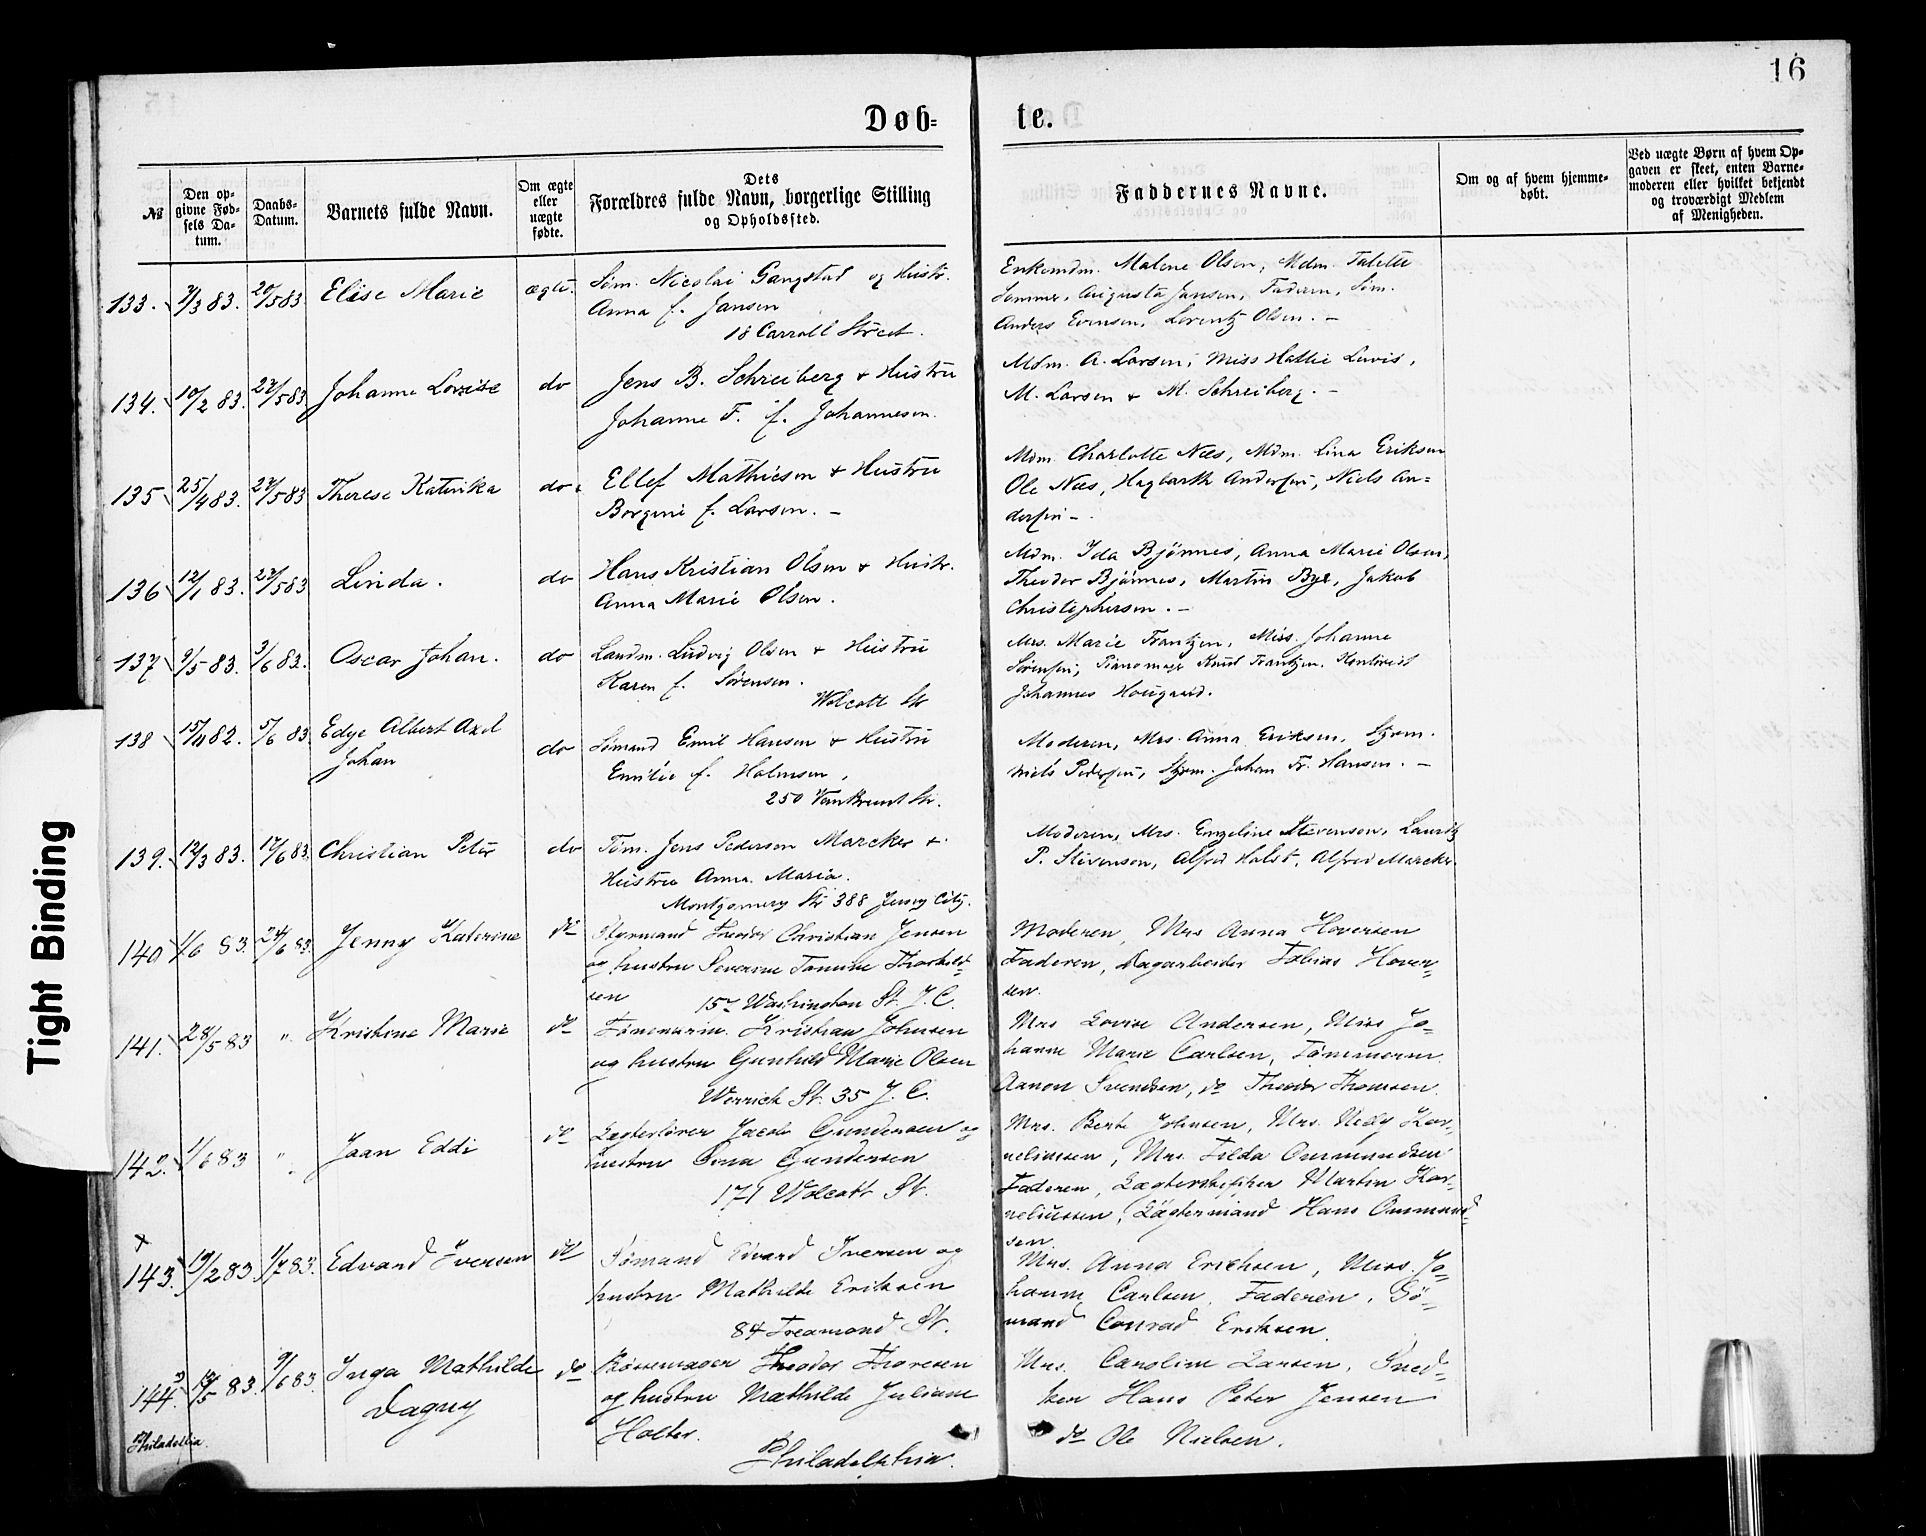 16
Døb-
te.
№
Den op-
givne Fød-
sels Da-
tum.
Daabs-
Datum.
Barnets fulde Navn.
Om ægte
eller
uægte
fødte.
Dets
Forældres fulde Navn, borgerlige Stilling
og Opholdssted.
Faddernes Navne.
Om og af hvem hjemme-
døbt.
Ved uægte Børn af hvem Op-
gaven er skeet, enten Barne-
moderen eller hvilket bekjendt
og troværdigt Medlem
af Menigheden.
133. 7/3 83. 20/5 83 Elise Marie ægte.
Søm. Nicolai Gangstad og Hustr.
Anna f. Jansen
18 Carroll Street.
Enkemdm. Malene Olsen, Mdm. Talette
Sommer, Augusta Jansen, Faderen, Søm.
Anders Evensen, Lorentz Olsen. –
134. 10/2 83. 27/5 83 Johanne Lovise do
Jens B. Schreiberg & Hustru
Johanne F. f. Johannesen.
Mdm. A. Larsen, Miss Hattie Lewis,
M. Larsen & M. Schreiberg. –
135 25/4 83. 27/5 83 Therese Katinka do.
Ellef Mathiesen & Hustru
Borgine f. Larsen. –
Mdm. Charlotte Næs, Mdm. Lina Eriksen
Ole Næs, Hagbarth Andersen, Niels An-
dersen –.
136 12/1 83. 27/5 83 Linda. do
Hans Kristian Olsen & Hustr.
Anna Marie Olsen.
Mdm. Ida Bjønnes, Anna Marie Olsen,
Theodor Bjønnes, Martin Bye, Jakob
Christophersen. –
137 9/5 83. 3/6 83. Oscar Johan. do
Landm. Ludvig Olsen & Hustru
Karen f. Sørensen.
Wolcott Str
Mrs. Marie Frantzen, Miss. Johanne
Sørensen, Pianomager Knud Frantzen, Kontorist
Johannes Hougaard.
138 15/11 82. 5/6 83. Edye Albert Axel
Johan
do
Sømand Emil Hansen & Hustru
Emilie f. Holmsen,
250 Van Brunt Str.
Moderen, Mrs. Anna Eriksen, Styrm.
Niels Pedersen, Styrm. Johan Fr. Hansen. –
139. 12/3 83. 17/6 83. Christian Peter do
Tøm. Jens Pedersen Marcker &
Hustru Anna Maria.
Montgomery Str 388 Jersey City.
Moderen, Mrs. Engeline Stevenson, Lauritz
P. Stevenson, Alfred Holst, Alfred Marcker.
140 1/6 83. 24/6 83. Jenny Katerine do
Styrmand Theodor Christian Jensen
og hustru Severine Tomine Thorkild-
sen 157 Washington St. J. C.
Moderen, Mrs Anna Hoversen
Faderen, Dagarbeider Tobias Hover-
sen.
141. 28/5 83 " Kristine Marie do
Tømmerm. Kristian Johnsen
og hustru Gunhild Marie Olsen
Werrick St. 35 J. C.
Mrs Lovise Andersen, Miss Jo-
hanne Marie Carlsen, Tømmerm.
Aanon Svendsen, do Theodor Thomsen.
142. 1/6 83 " Jaan Eddi do
Lægterfører Jacob Gundersen og
hustru Gundersen
171 Wolcott St.
Mrs. Berte Johnsen, Mrs. Nelly Kor-
neliussen, Mrs. Tilda Ommundsen
Faderen, Lægterskipper Martin Kor-
neliussen, Lægtermand Hans Ommund-
sen.
x
143. 19/2 83. 1/7 83. Edvard Iversen do
Sømand Edvard Iversen og
hustru Mathilde Eriksen
84 Treamond St.
Mrs. Anna Erichsen, Miss. Jo-
hanne Carlsen, Faderen, Sø-
mand Conrad Eriksen.
144. 12/5 83. 9/6 83. Inga Mathilde
Dagny
do
Bøssemager Theodor Thoresen
og hustru Mathilde Juliane
Holter.
Philadelphia.
Mrs. Caroline Larsen, Sned-
ker Hans Peter Jensen
do Ole Nielsen.
Philadellia.
Tight Binding